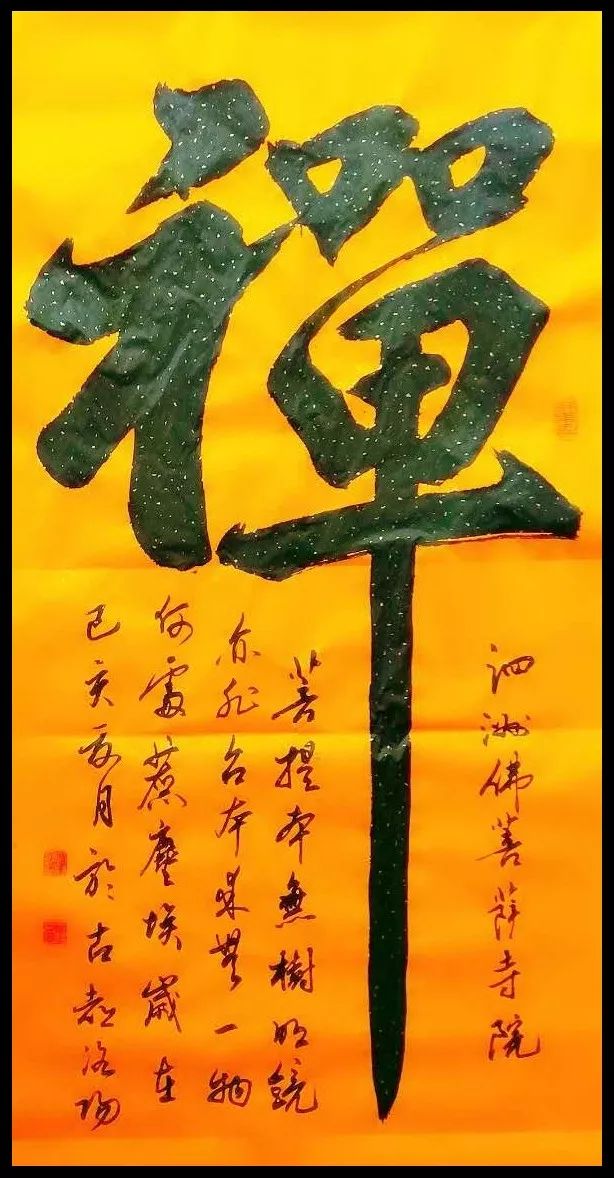 禪
泗洲佛菩薩寺院
菩提本無樹明鏡
亦非台本來無一物
何處惹塵埃歲在
己亥夏月於古都洛陽